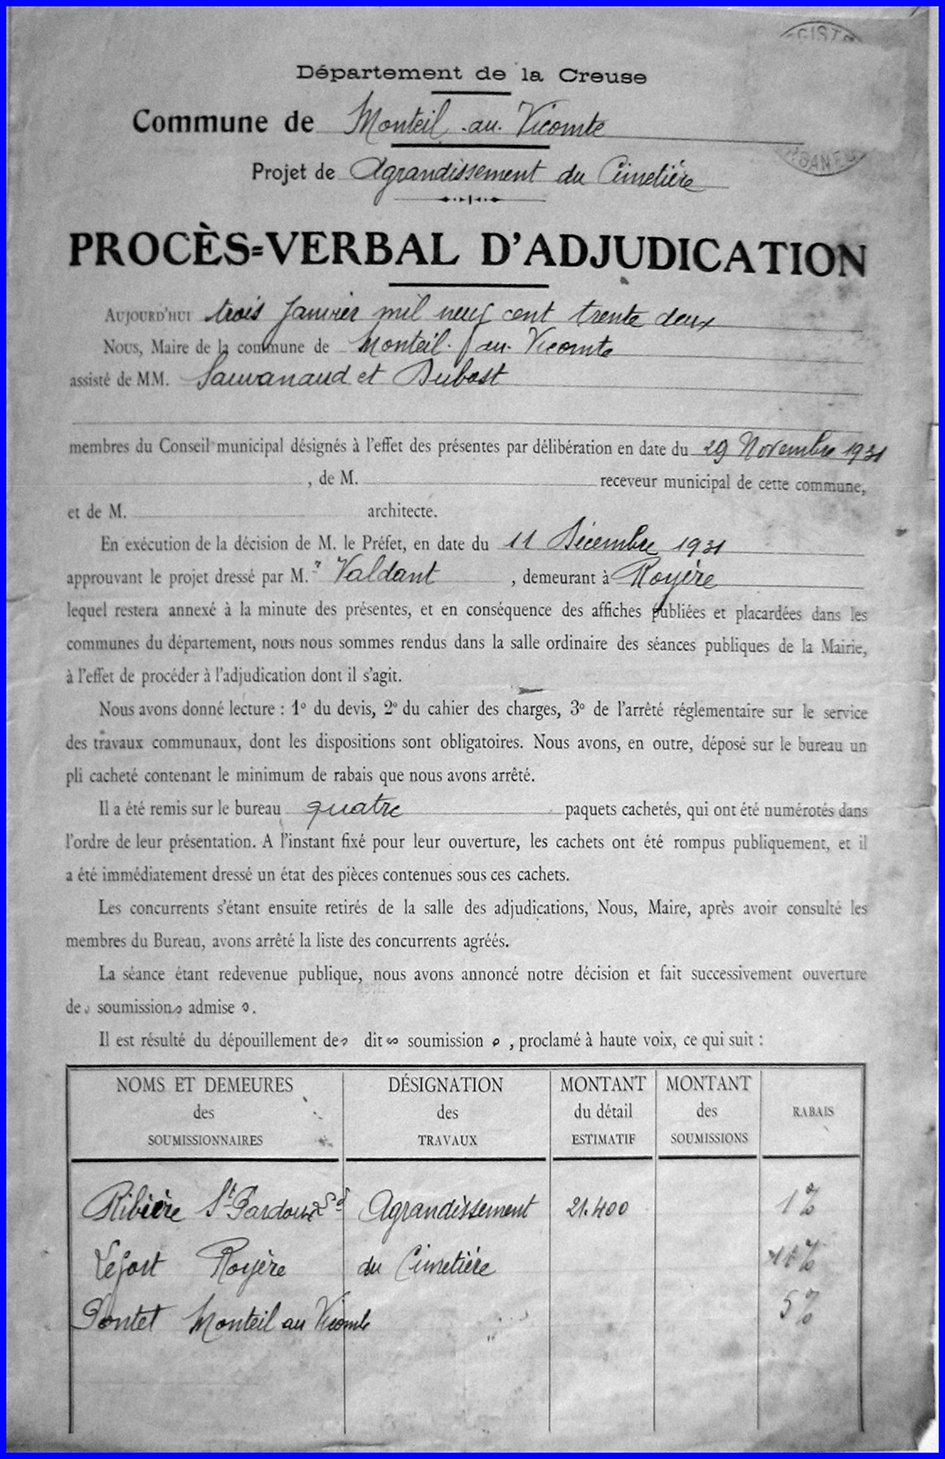 Département de la Creuse
Commune de Monteil-au-Vicomte
Projet de Agrandissement du Cimetière
PROCÈS=VERBAL D'ADJUDICATION
AUJOURD'HUI trois Janvier mil neuf cent trente deux
NOUS, Maire de la commune de Monteil-au-Vicomte
assisté de MM. Sauvanaud et Dubost
membres du Conseil municipal désignés à l'effet des présentes par délibération en date du 29 Novembre 1931
, de M. receveur municipal de cette commune,
et de M. architecte.
En exécution de la décision de M. le Préfet, en date du 11 Décembre 1931
approuvant le projet dressé par M. Valdant , demeurant à Royère
lequel restera annexé à la minute des présentes, et en conséquence des affiches publiées et placardées dans les
communes du département, nous nous sommes rendus dans la salle ordinaire des séances publiques de la Mairie,
à l'effet de procéder à l'adjudication dont il s'agit.
Nous avons donné lecture : 1° du devis, 2° du cahier des charges, 3° de l'arrêté réglementaire sur le service
des travaux communaux, dont les dispositions sont obligatoires. Nous avons, en outre, déposé sur le bureau un
pli cacheté contenant le minimum de rabais que nous avons arrêté.
Il a été remis sur le bureau quatre paquets cachetés, qui ont été numérotés dans
l'ordre de leur présentation. A l'instant fixé pour leur ouverture, les cachets ont été rompus publiquement, et il
a été immédiatement dressé un état des pièces contenues sous ces cachets.
Les concurrents s'étant ensuite retirés de la salle des adjudications, Nous, Maire, après avoir consulté les
membres du Bureau, avons arrêté la liste des concurrents agréés.
La séance étant redevenue publique, nous avons annoncé notre décision et fait successivement ouverture
des soumissions admises.
Il est résulté du dépouillement des dites soumissions, proclamé à haute voix, ce qui suit :
NOMS ET DEMEURES des SOUMISSIONNAIRES
DÉSIGNATION des TRAVAUX
MONTANT du détail ESTIMATIF
MONTANT des SOUMISSIONS
RABAIS
Ribière St Pardoux Agrandissement 21.400 1%
Lefort Royère du Cimetière
Pontet Monteil au Vicomte 5%